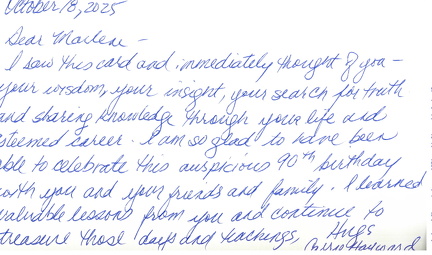 October 18, 2025
Dear Marlene -
I saw this card and immediately thought of you -
your wisdom, your insight, your search for truth
and sharing knowledge through your life and
esteemed career. I am so glad to have been
able to celebrate this auspicious 90th birthday
with you and your friends and family. I learned
valuable lessons from you and continue to
treasure those days and teachings, Hugs